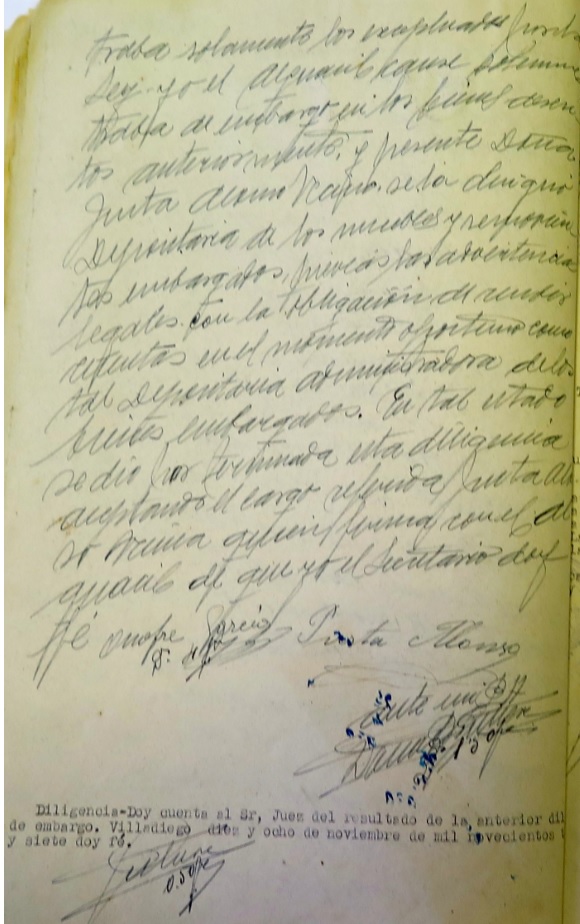 traba solamente los exceptuados por la
Ley. yo el Alguacil cause solemne
traba de embargo en los bienes descri
tos anteriormente, y presente Doña
Justa Alonso Vecina. se la designó
Depositaria de los muebles y
tes embargados, previas las advertencias
legales. con la obligación de rendir
cuentas en el momento oportuno como
tal Depositaria administradora de los
bienes embargados. En tal estado
se dio por terminada esta diligencia
aceptando el cargo referida Justa Alon
so Vecina quien firma con el Al
guacil de que yo el Secretario doy
fé Onofre García Justa Alonso
Ante mi
Diligencia-Doy cuenta al Sr, Juez del resultado de la anterior dil
de embargo. Villadiego diez y ocho de noviembre de mil novecientos t
y siete doy fé.
0.50